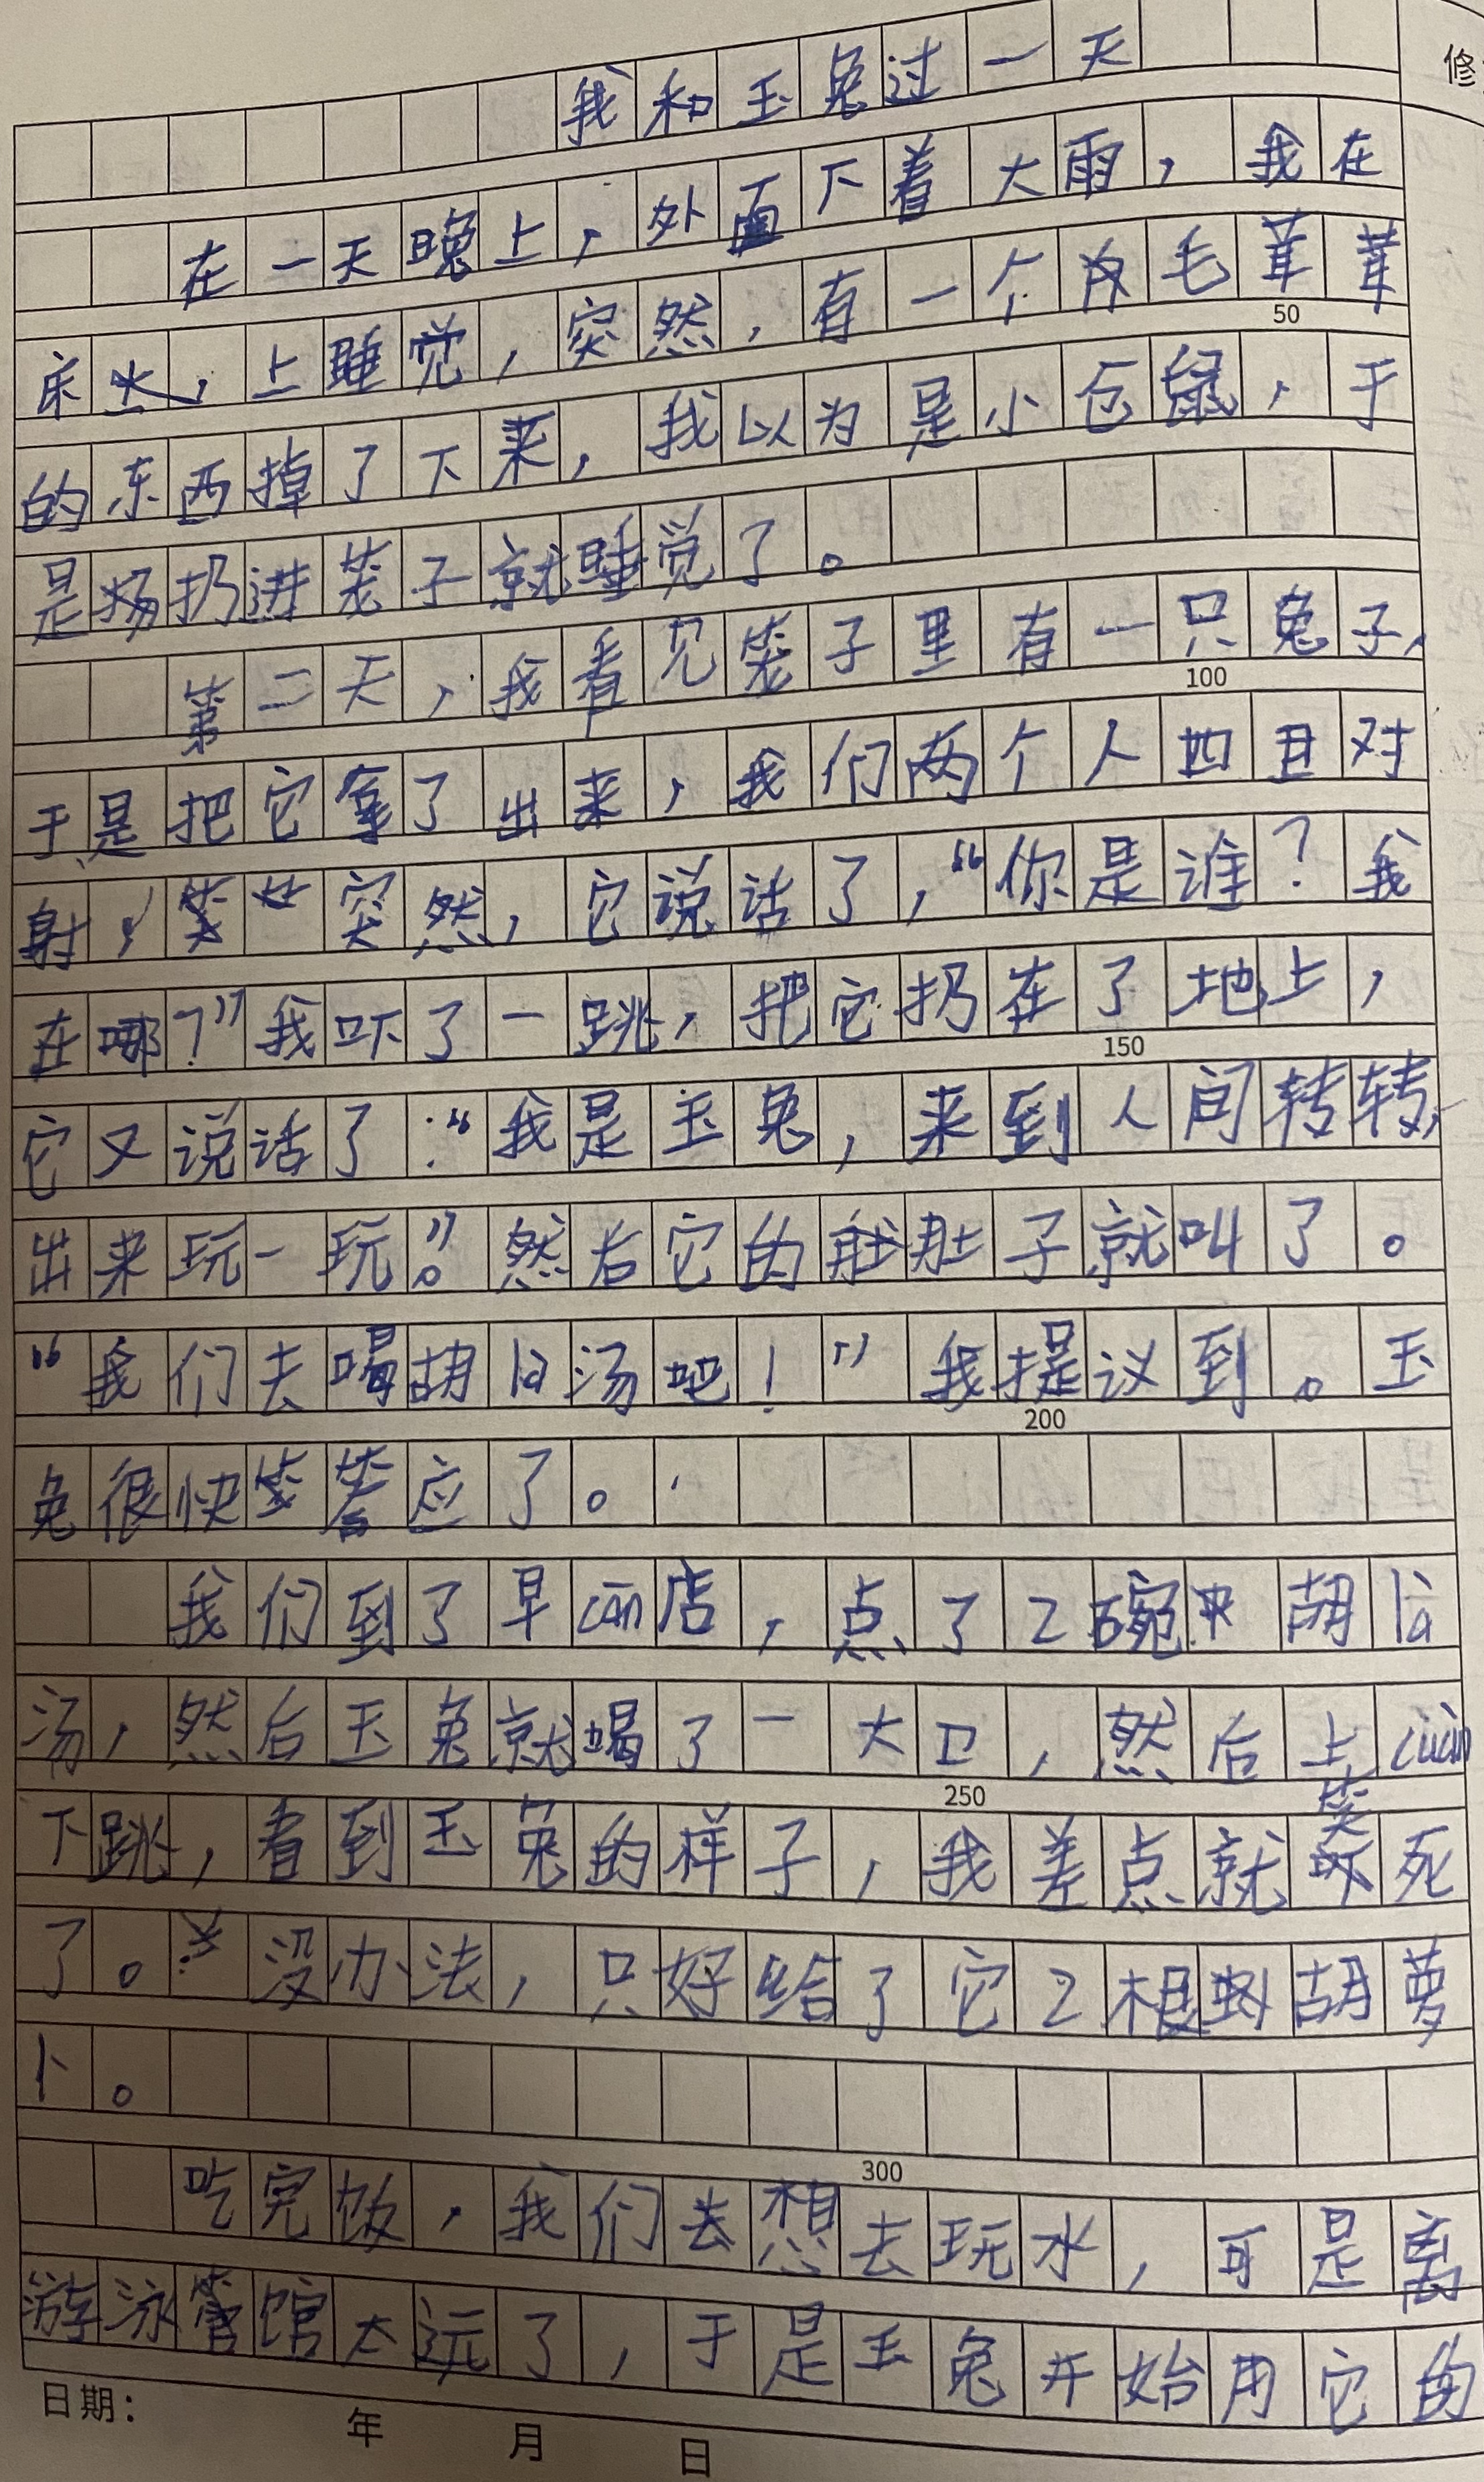 我和玉兔过一天
修
在一天晚上，外面下着大雨，我在
床上，上睡觉，突然，有一个毛茸茸
50
的东西掉了下来，我以为是小仓鼠，于
是扔进笼子就睡觉了。
第二天，我看见笼子里有一只兔子，
100
于是把它拿了出来，我们两个人四目对
射，突然，它说话了，“你是谁？我
在哪？”我吓了一跳，把它扔在了地上，
150
它又说话了：“我是玉兔，来到人间转转，
出来玩一玩。”然后它的肚子就叫了。
“我们去喝胡là汤吧！”我提议到。玉
200
兔很快答应了。
我们到了早cān店，点了2碗胡là
汤，然后玉兔就喝了一大口，然后上cuàn
250
下跳，看到玉兔的样子，我差点就笑死
了。没办法，只好给了它2根胡萝
卜。
300
吃完饭，我们去想去玩水，可是离
游泳馆太远了，于是玉兔开始用它的
日期： 年 月 日